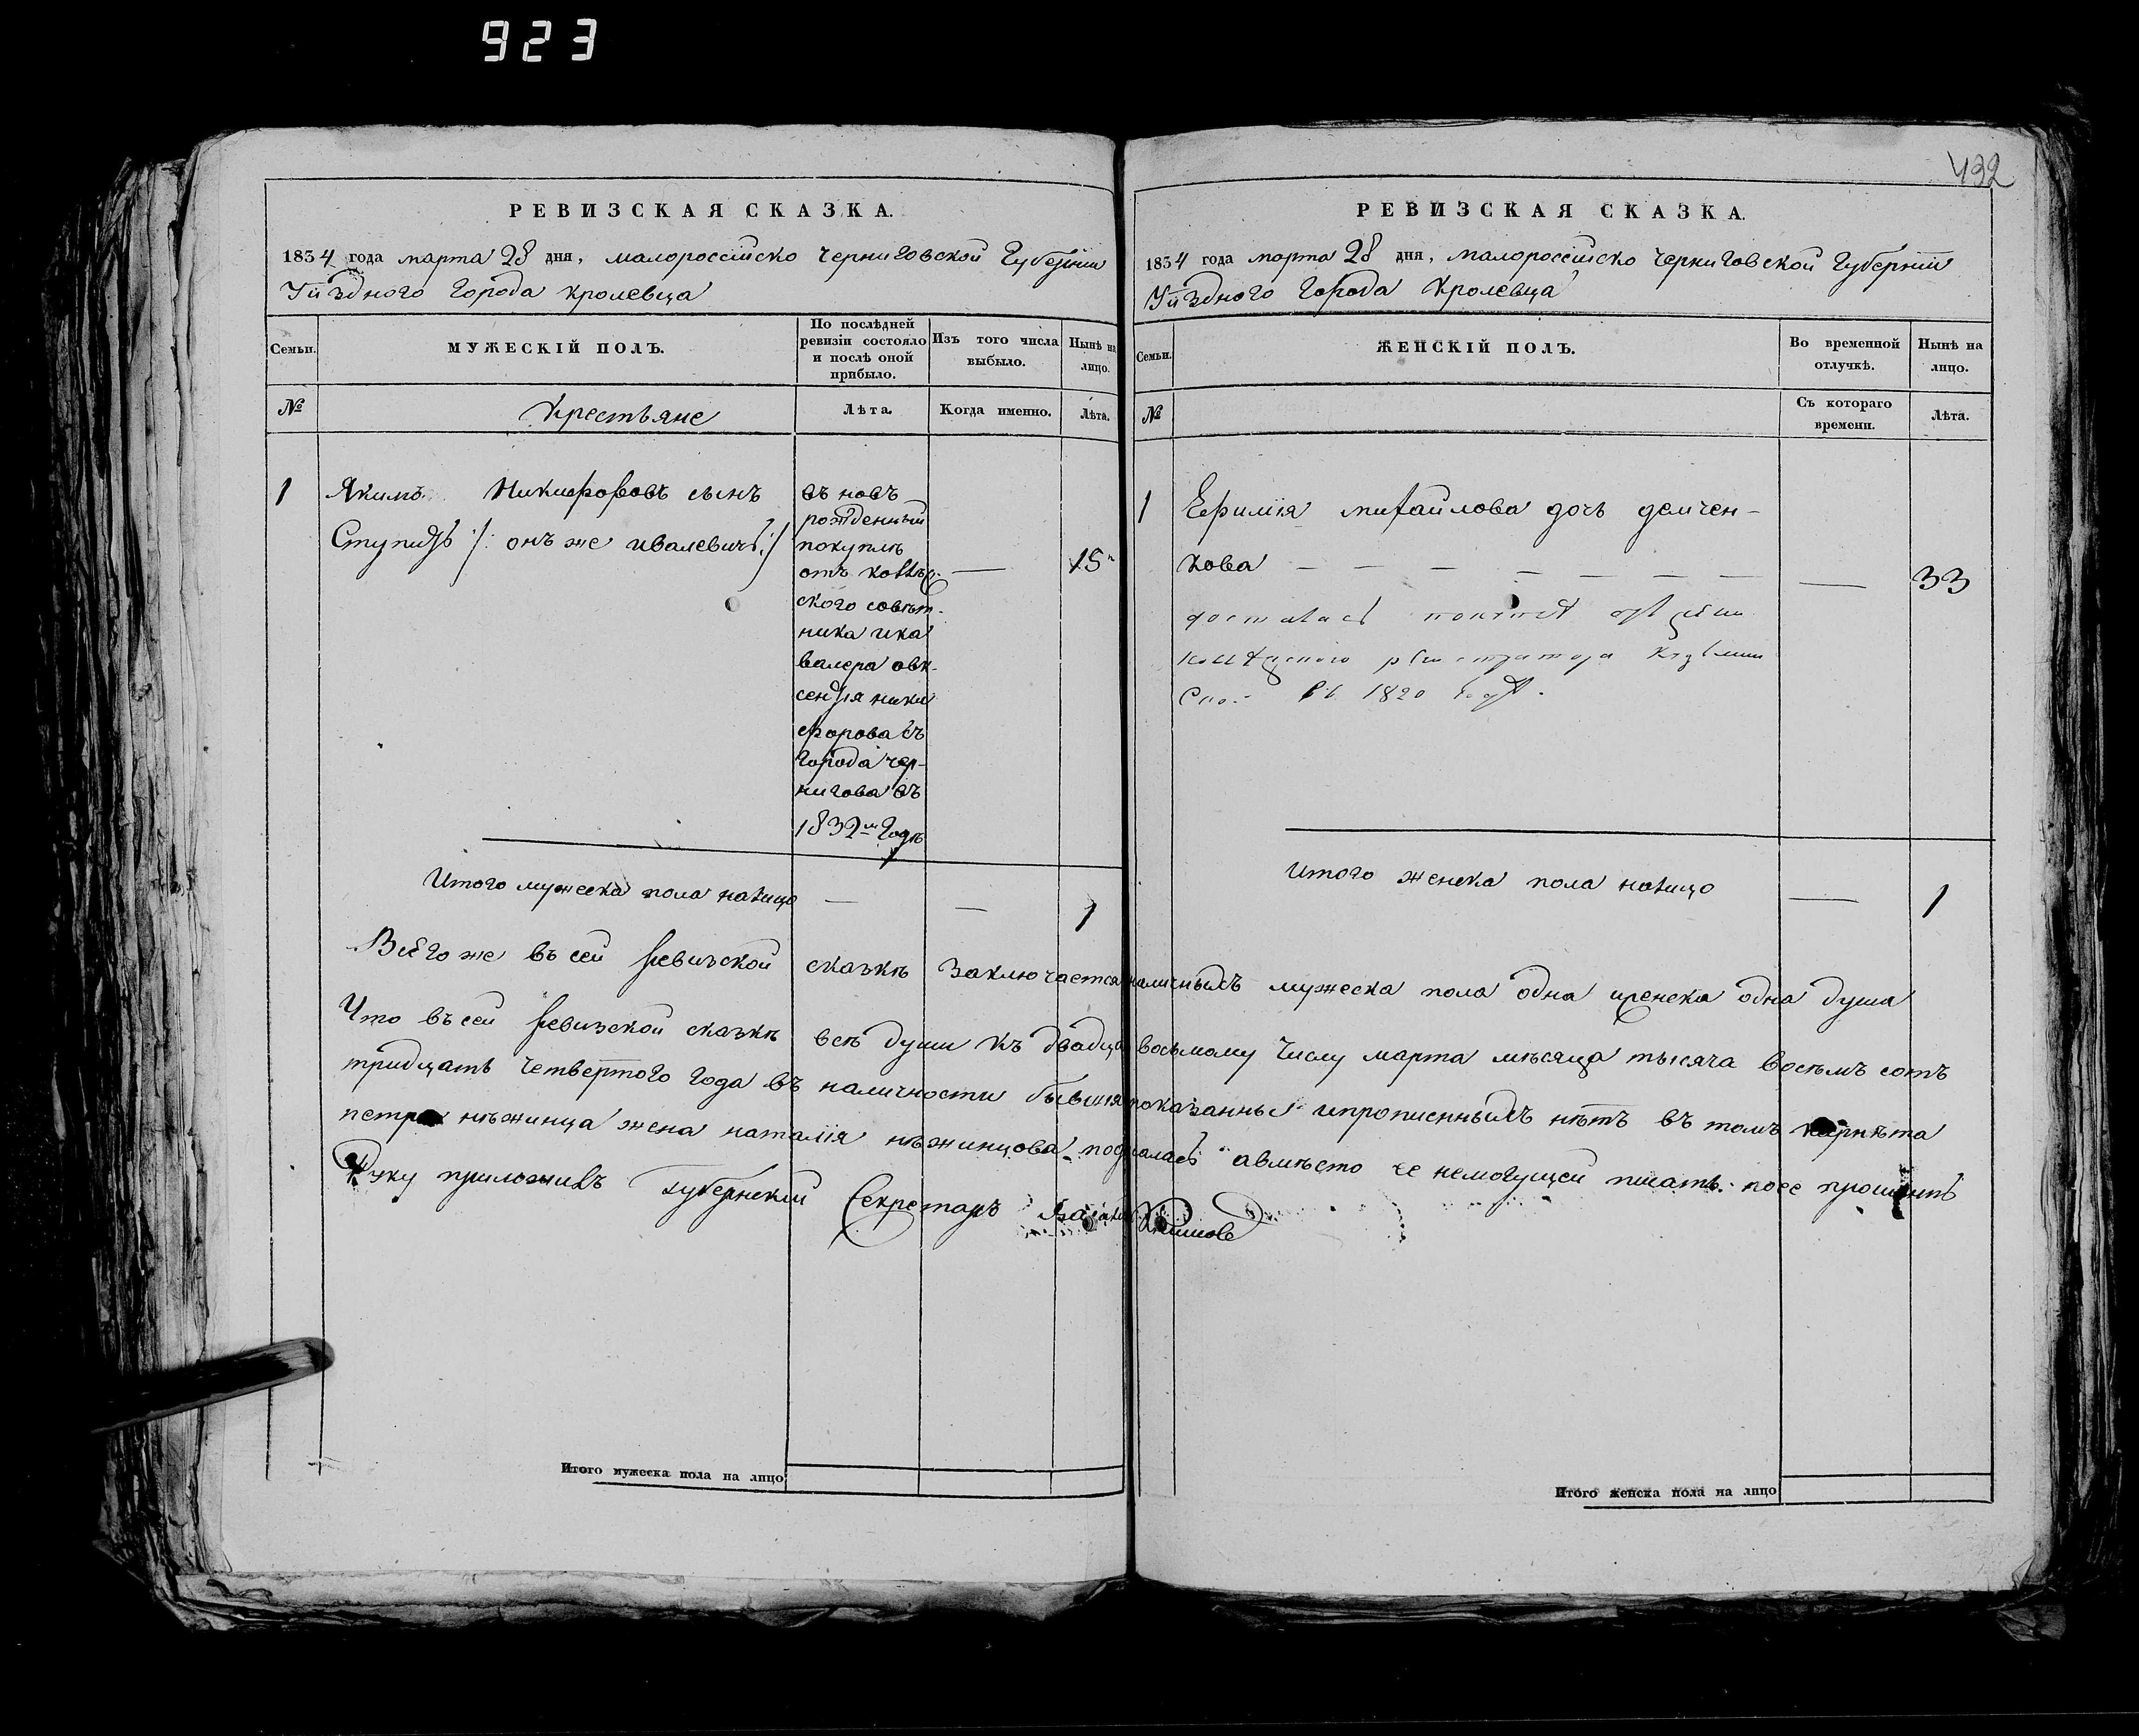 923
432
РЕВИЗСКАЯ СКАЗКА.
1834 года марта 28 дня, малороссійско черниговской Губерніи
Уѣзднаго города Кролевца
Семьи.
МУЖЕСКІЙ ПОЛЪ.
По послѣдней ревизіи состояло и послѣ оной прибыло.
Изъ того числа выбыло.
Нынѣ на лицо.
№
Крестьяне
Лѣта.
Когда именно.
Лѣта.
1
Якимъ Никифоровъ сынъ
Ступакъ /: онъ же :/
въ новъ
рожденный
покуплѣ
отъ
ского совѣт-
ника и ка
валера авк-
сентія ники
форова въ
города чер-
нигова въ
1832м годѣ
—
15
Итого мужеска пола налицо — — 1
РЕВИЗСКАЯ СКАЗКА.
1834 года марта 28 дня, малороссійско черниговской Губерніи
Уѣзднаго города Кролевца
Семьи.
ЖЕНСКІЙ ПОЛЪ.
Во временной отлучкѣ.
Нынѣ на лицо.
№
Съ котораго времени.
Лѣта.
1
Ефимія михайлова дочь демчен-
кова — — — — — — — — 33
досталась
регистратора
въ 1820 годѣ.
Итого женска пола налицо — 1
Всего же въ сей ревизской сказкѣ заключается наличныхъ мужеска пола одна и женска одна душа
Что въ сей ревизской сказкѣ всѣ души къ двадца восьмому числу марта мѣсяца тысяча восемъ сотъ
тридцать четвертого года въ наличности бывшія показанны и прописенныхъ нѣтъ въ томъ
петра нѣжинца жена наталія нѣжинцова подписалась а вмѣсто ее немогущей писать по ее прошенію
Руку приложилъ Губернскій Секретарь
Итого мужеска пола на лицо
Итого женска пола на лицо